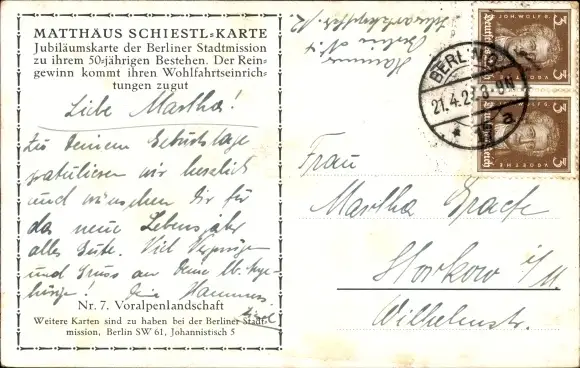 MATTHÄUS SCHIESTL-KARTE
Jubiläumskarte der Berliner Stadtmission
zu ihrem 50-jährigen Bestehen. Der Rein-
gewinn kommt ihren Wohlfahrtseinrich-
tungen zugut
Liebe Martha!
Zu Deinem Geburtstage
gratulieren wir herzlich
und wünschen Dir für
das neue Lebensjahr
alles Gute. Viel Vergnügen
und Gruss an Deine lb. Ange-
hörige!
Nr. 7. Voralpenlandschaft
Weitere Karten sind zu haben bei der Berliner Stadt-
mission, Berlin SW 61, Johannistisch 5
Berlin
BERLIN
21.4.2
a
JOH. WOLFG.
3
3
Deutsches Reich
3
3
V. GOETHE
Frau
Martha Graefe
Storkow i/M
Wilhelmstr.